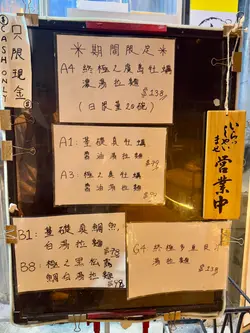 只限現金
CASH ONLY
※期間限定※
A4 終極之廣島牡蠣
濃湯拉麵
$138
(日限量20碗)
A1: 基礎真牡蠣
醬油湯拉麵
A3: 極之真牡蠣
醬油湯拉麵
B1: 基礎真鯛魚
白湯拉麵
B8: 極之黑松露
鯛白湯拉麵 $98
G4: 終極多重貝
湯拉麵
$138
いらっしゃいませ
営業中